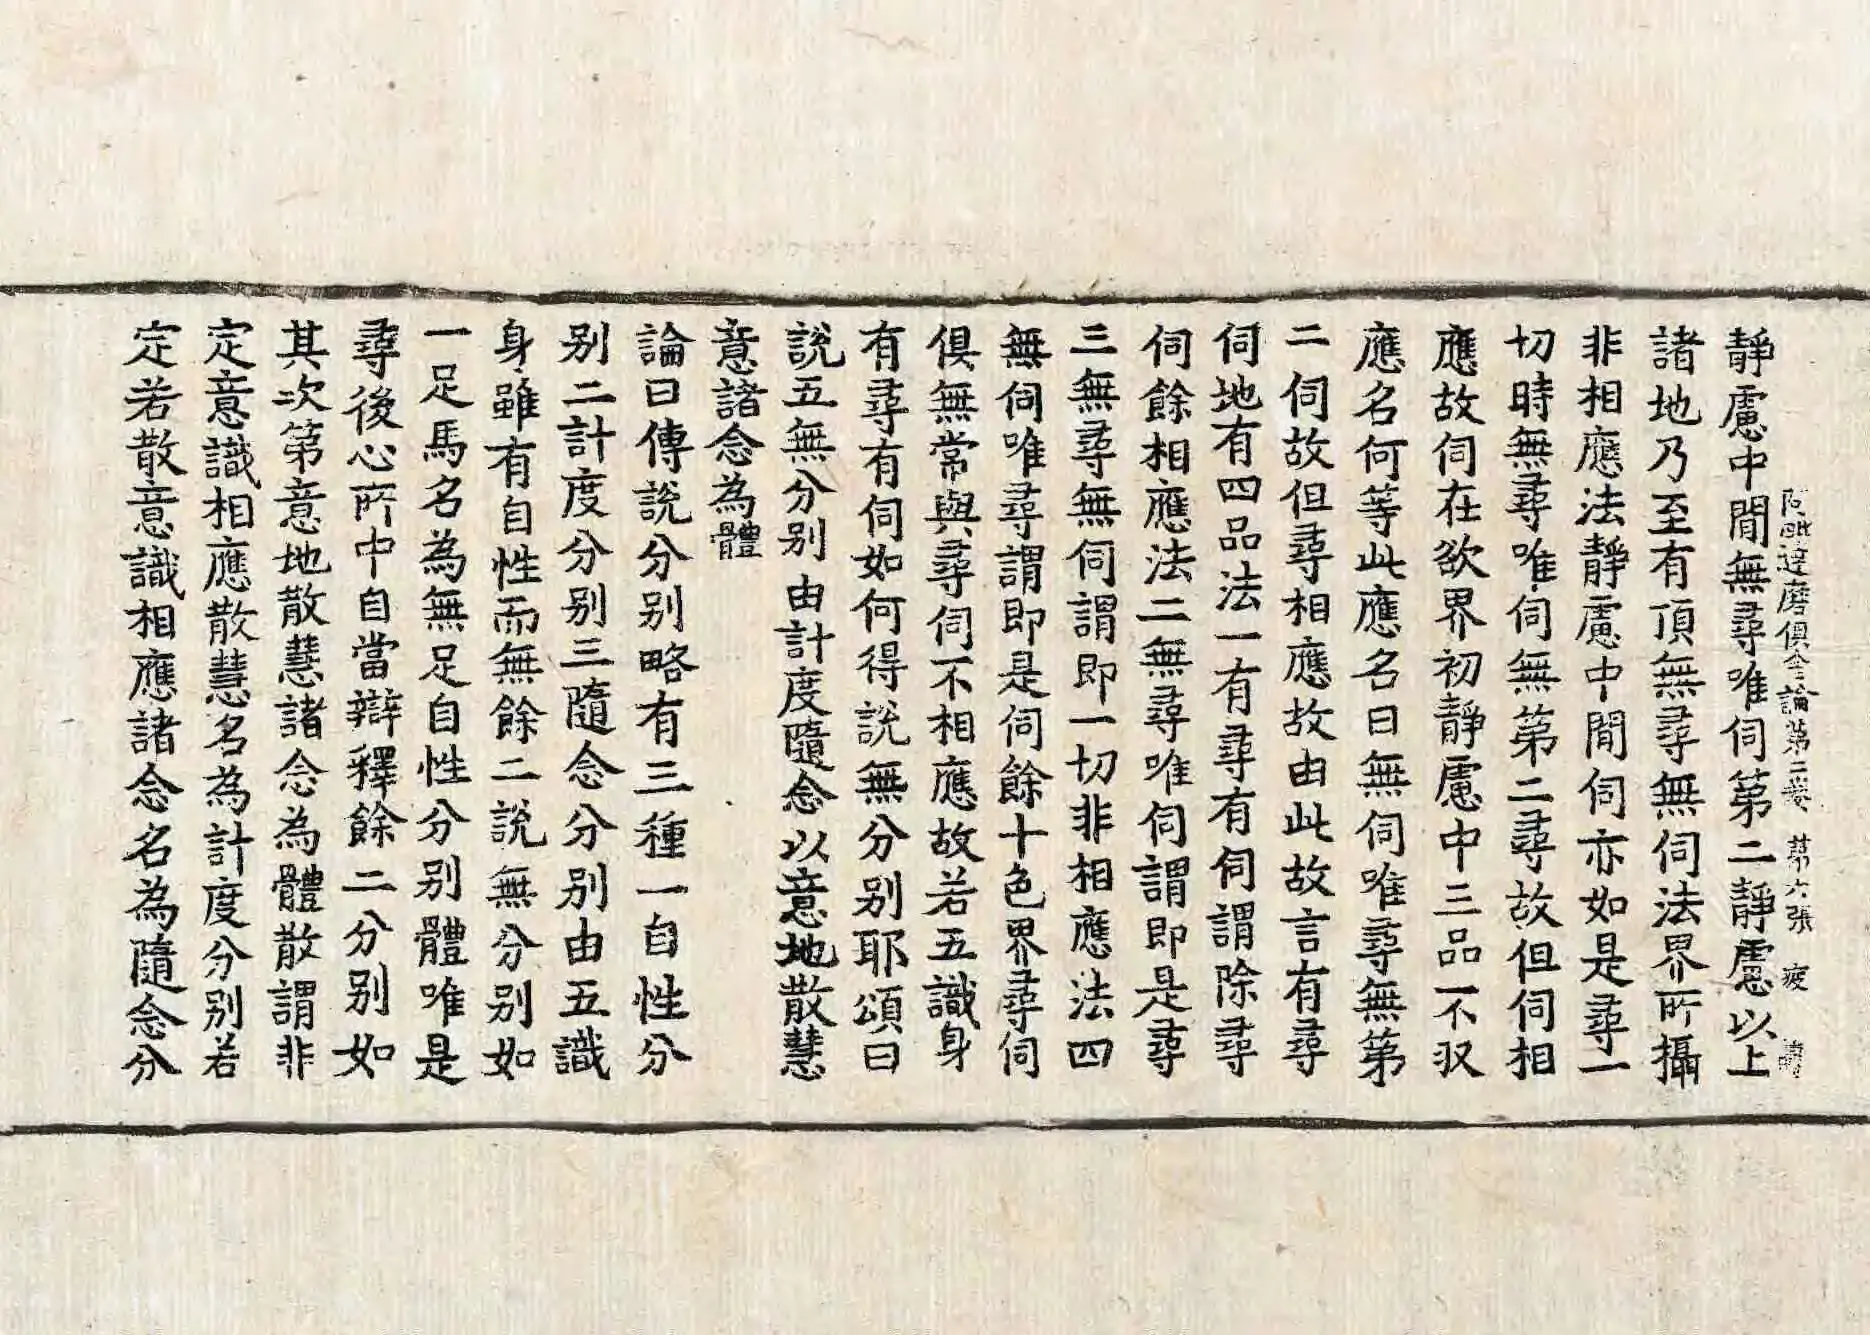 阿毗達磨俱舍論第二卷 第六張 疲
靜慮中閒無尋唯伺第二靜慮以上
諸地乃至有頂無尋無伺法界所攝
非相應法靜慮中閒伺亦如是尋一
切時無尋唯伺無第二尋故但伺相
應故伺在欲界初靜慮中三品不收
應名何等此應名曰無伺唯尋無第
二伺故但尋相應故由此故言有尋
伺地有四品法一有尋有伺謂除尋
伺餘相應法二無尋唯伺謂即是尋
三無尋無伺謂即一切非相應法四
無伺唯尋謂即是伺餘十色界尋伺
俱無常與尋伺不相應故若五識身
有尋有伺如何得說無分別耶頌曰
說五無分別 由計度隨念 以意地散慧
意諸念為體
論曰傳說分別略有三種一自性分
別二計度分別三隨念分別由五識
身雖有自性而無餘二說無分別如
一足馬名為無足自性分別體唯是
尋後心所中自當辯釋餘二分別如
其次第意地散慧諸念為體散謂非
定意識相應散慧名為計度分別若
定若散意識相應諸念名為隨念分